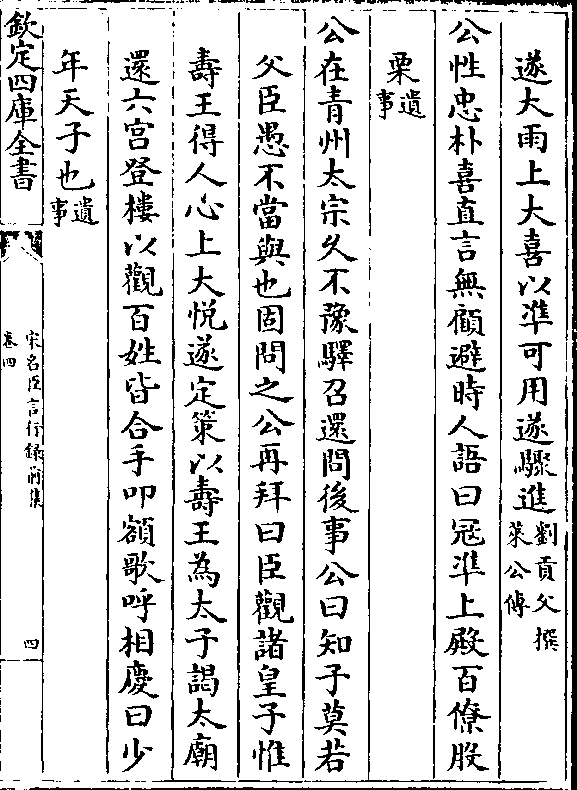 遂大雨上大喜以準可用遂驟進劉貢父撰
萊公傳
公性忠朴喜直言無顧避時人語曰冦準上殿百僚股
栗遺
事
公在青州太宗久不豫驛召還問後事公曰知子莫若
父臣愚不當與也固問之公再拜曰臣觀諸皇子惟
壽王得人心上大悦遂定策以壽王為太子謁太廟
還六宫登樓以觀百姓皆合手叩額歌呼相慶曰少
年天子也遺
事
欽定四庫全書
宋名臣言行録前集
卷四
四